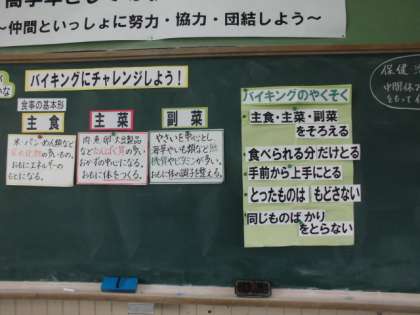 ～仲間といっしょに努力・協力・団結しよう～
バイキングにチャレンジしよう！
食事の基本形
主食
米・パン・めん類など
炭水化物の多いもの。
おもにエネルギーの
もとになる。
主菜
肉・魚・卵・大豆製品
などたんぱく質の多い
おかずの中心になる。
おもに体をつくる。
副菜
やさいを中心とし
海草やいも類など無
機質やビタミンが多い。
おもに体の調子を整える。
バイキングのやくそく
主食・主菜・副菜
をそろえる
食べられる分だけとる
手前から上手にとる
とったものはもどさない
同じものばかり
をとらない
保健
中間休
をもって